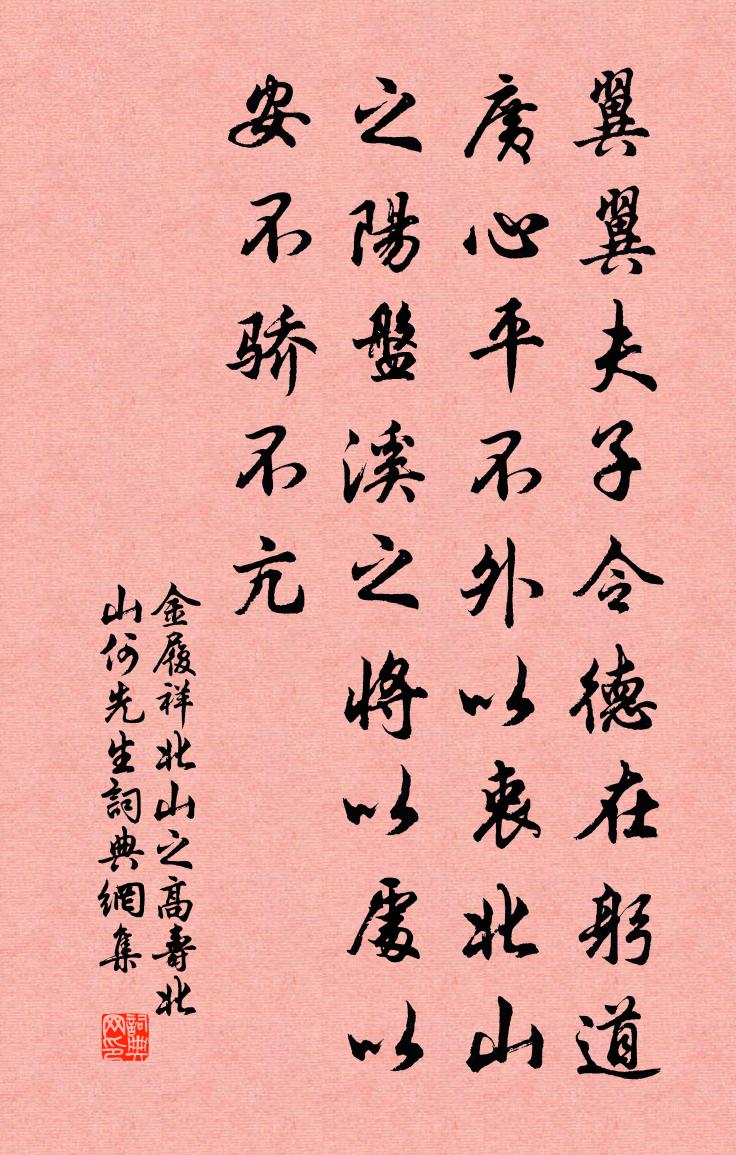 翼翼夫子令德在躬道
廣心平不外以衷北山
之陽盤溪之將以處以
安不骄不亢
金履祥北山之高壽北
山何先生詞典網集
詞典網印